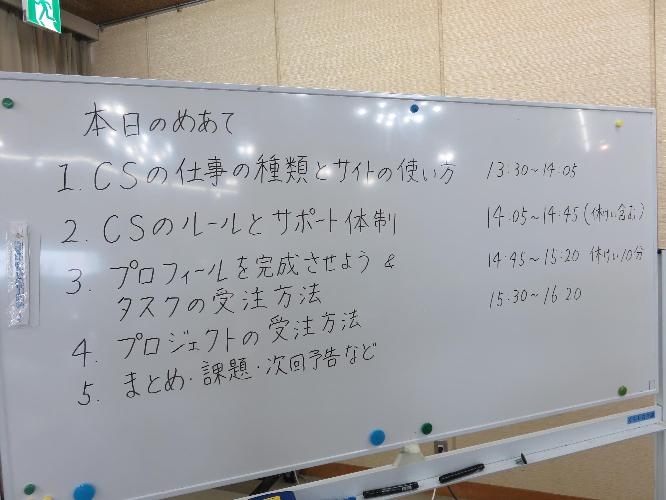 本日のめあて
1. CSの仕事の種類とサイトの使い方 13:30~14:05
2. CSのルールとサポート体制 14:05~14:45(休けい含む)
3. プロフィールを完成させよう & 14:45~15:20 休けい10分
タスクの受注方法 15:30~16:20
4. プロジェクトの受注方法
5. まとめ・課題・次回予告など